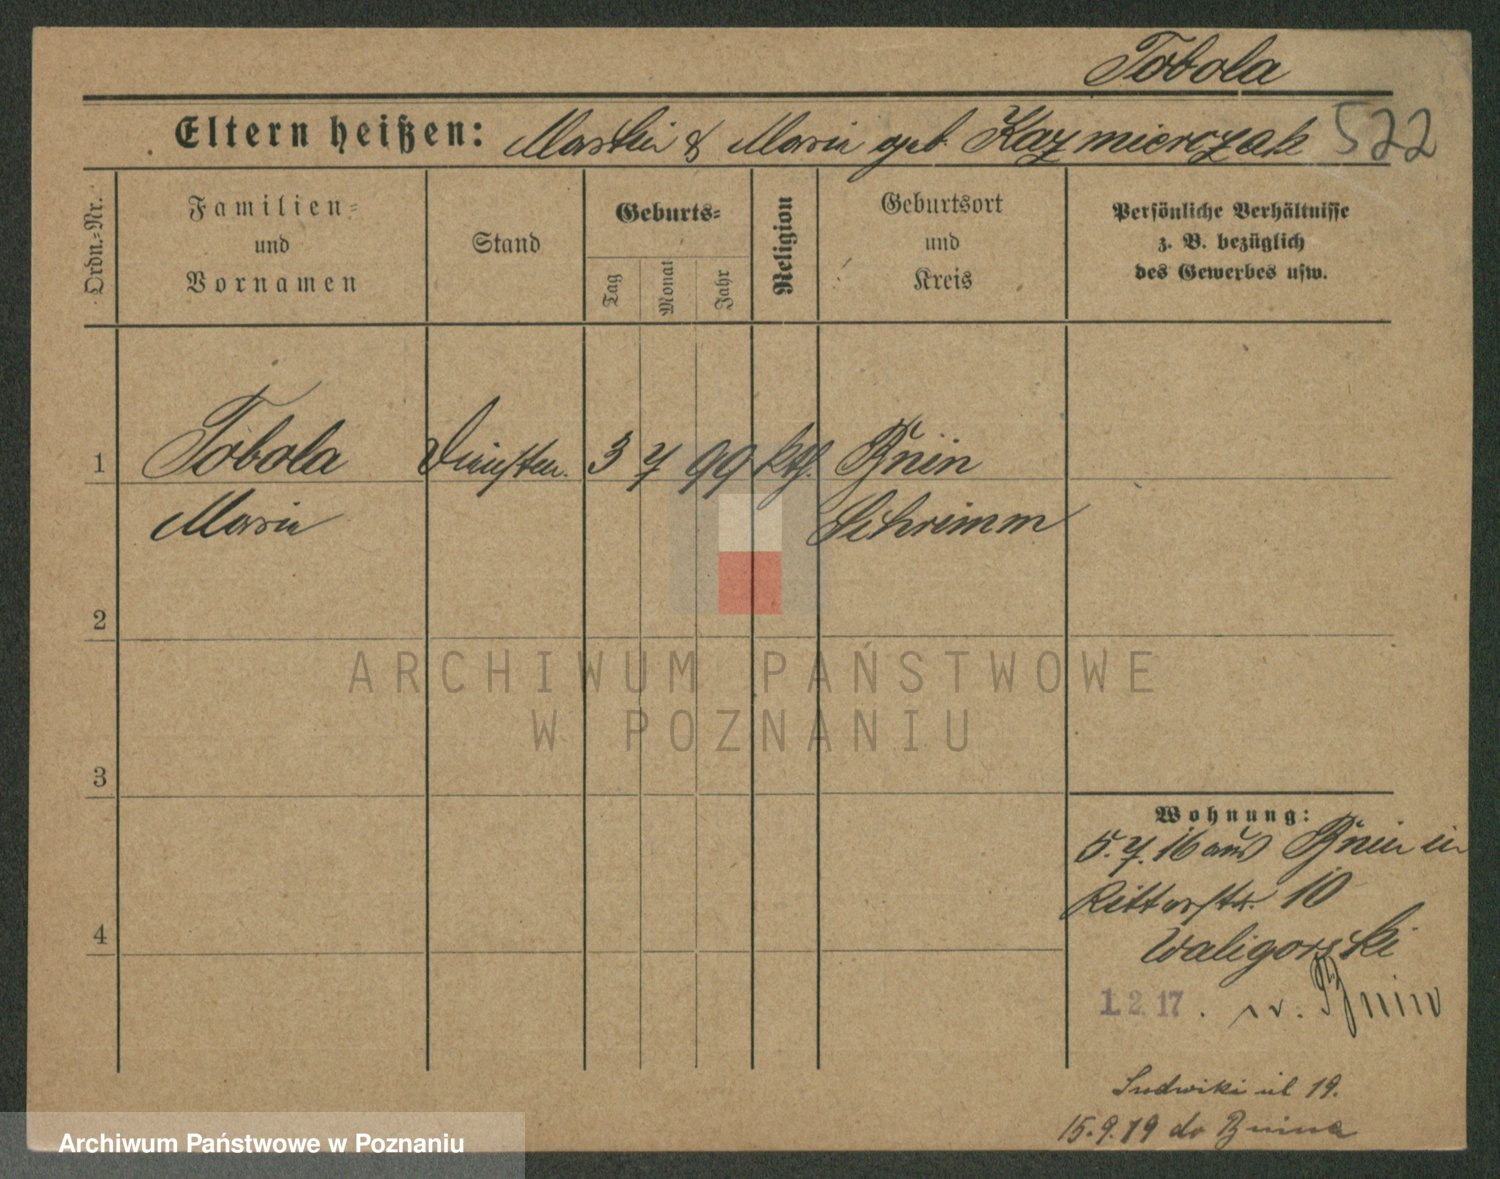 Tobola
Eltern heißen: Martin & Maria geb. Kazmierczak 522
Ordn.-Nr.
Familien-
und
Vornamen
Stand
Geburts-
Tag
Monat
Jahr
Religion
Geburtsort
und
Kreis
Persönliche Verhältnisse
z. B. bezüglich
des Gewerbes usw.
1 Tobola 3 7 99 kth. Bnin
Maria Schrimm
2
ARCHIWUM PAŃSTWOWE
W POZNANIU
3
Wohnung:
5.7.16 aus Bnin in
Ritterstr. 10
4
Waligorski
1.2.17. n. Bnin
Ludwiki ul 19.
15.9.19 do Bnina
Archiwum Państwowe w Poznaniu